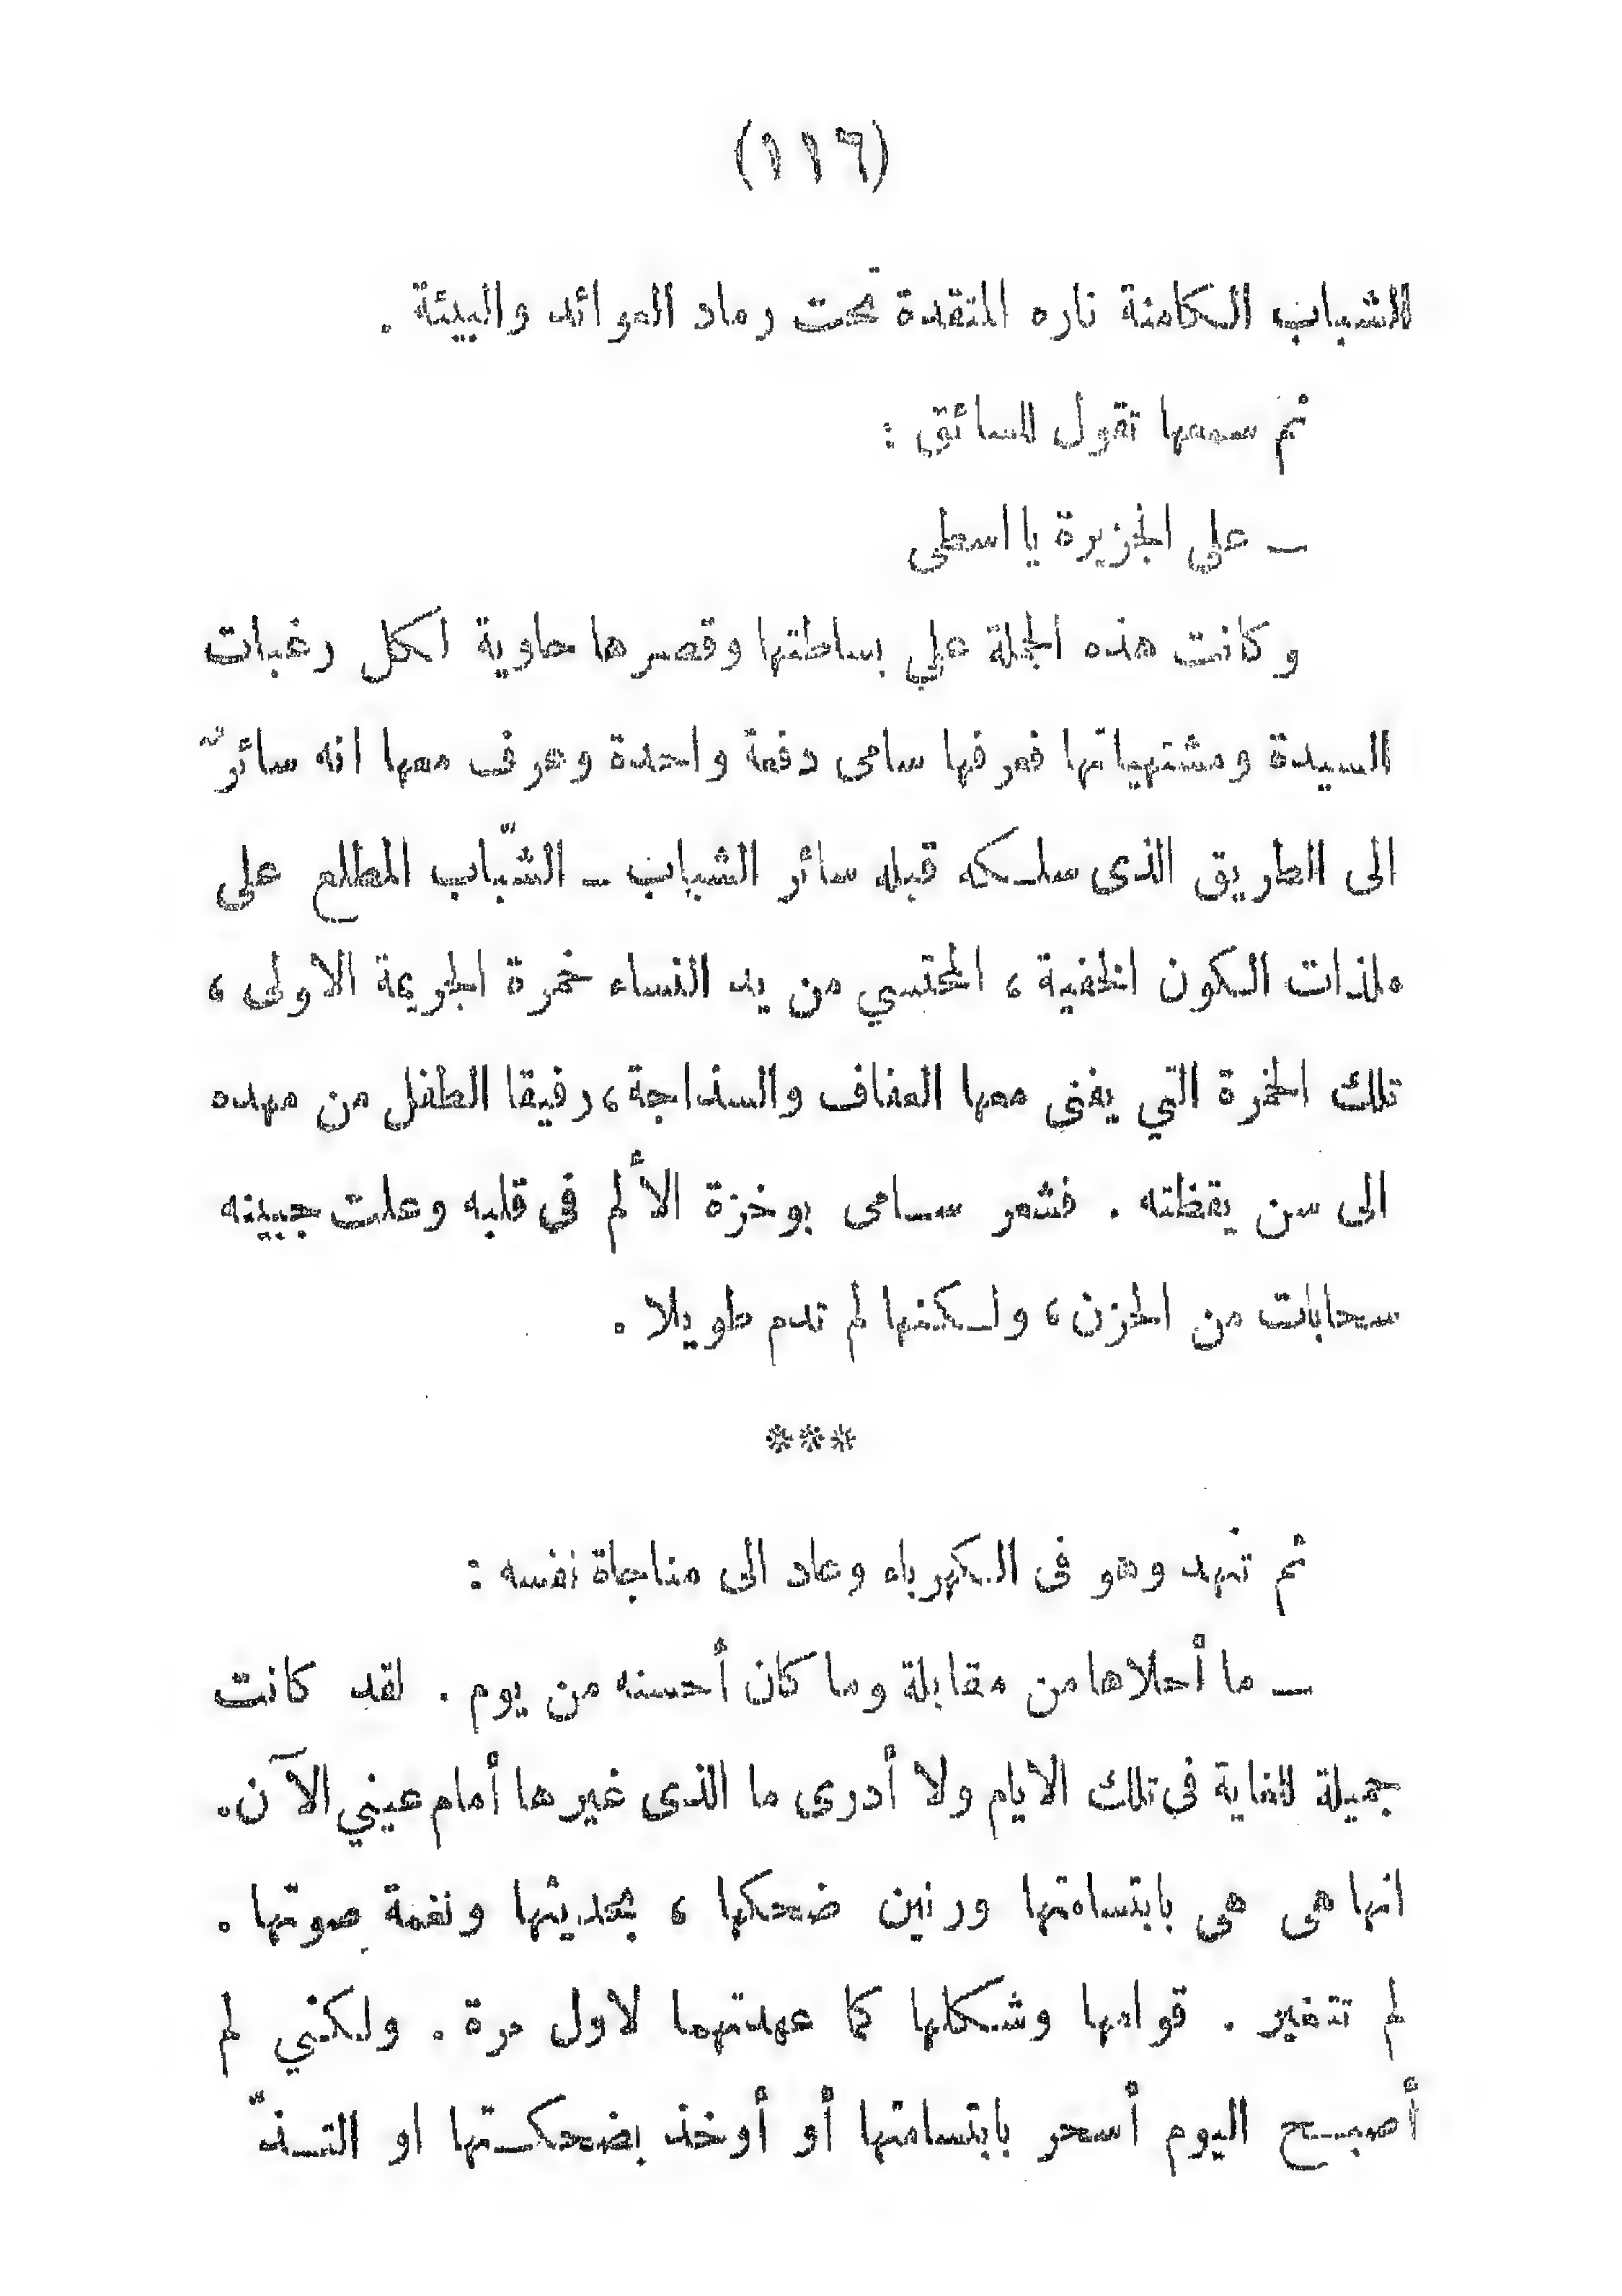 (١١٦)
للشباب الكامنة ناره المتقدة تحت رماد العوائد والبيئة .
ثم سمعها تقول للسائق :
ـ على الجزيرة يا اسطى
وكانت هذه الجملة علي بساطتها وقصرها حاوية لكل رغبات
السيدة ومشتهياتها فعرفها سامى دفعة واحدة وعرف معها انه سائرٌ
الى الطريق الذى سلكه قبله سائر الشباب ـ الشبّاب المطلع على
ملذات الكون الخفية ، المحتسي من يد النساء خمرة الجريمة الاولى ،
تلك الخمرة التي يفنى معها العفاف والسذاجة ، رفيقا الطفل من مهده
الى سن يقظته . فشعر سامى بوخزة الألم فى قلبه وعلت جبينه
سحابات من الحزن ، ولكنها لم تدم طويلا .
***
ثم تنهد وهو فى الكهرباء وعاد الى مناجاة نفسه :
ـ ما أحلاها من مقابلة وما كان أحسنه من يوم . لقد كانت
جميلة للغاية فى تلك الايام ولا أدرى ما الذى غيرها أمام عيني الآن .
انها هى هى بابتسامتها ورنين ضحكها ، بحديثها ونغمة صوتها .
لم تتغير . قوامها وشكلها كما عهدتهما لاول مرة . ولكني لم
أصبح اليوم أسحر بابتسامتها أو أوخذ بضحكتها او التذّ